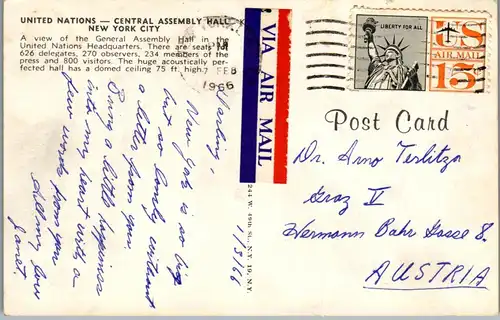 UNITED NATIONS — CENTRAL ASSEMBLY HALL
NEW YORK CITY
A view of the General Assembly Hall in the
United Nations Headquarters. There are seats for
626 delegates, 270 observers, 234 members of the
press and 800 visitors. The huge acoustically per-
fected hall has a domed ceiling 75 ft. high.
FEB
1966
VIA AIR MAIL
LIBERTY FOR ALL
US
AIR MAIL
15¢
Post Card
244 W. 49th St., N.Y. 19, N.Y.
1/5/66
Darling,
New York is so big
but so lonely without
a letter from you
Bring a little happiness
into my heart with a
few words from you
All my love
Janet.
Dr. Arno Terlitza
Graz V
Hermann Bahr Gasse 8.
AUSTRIA